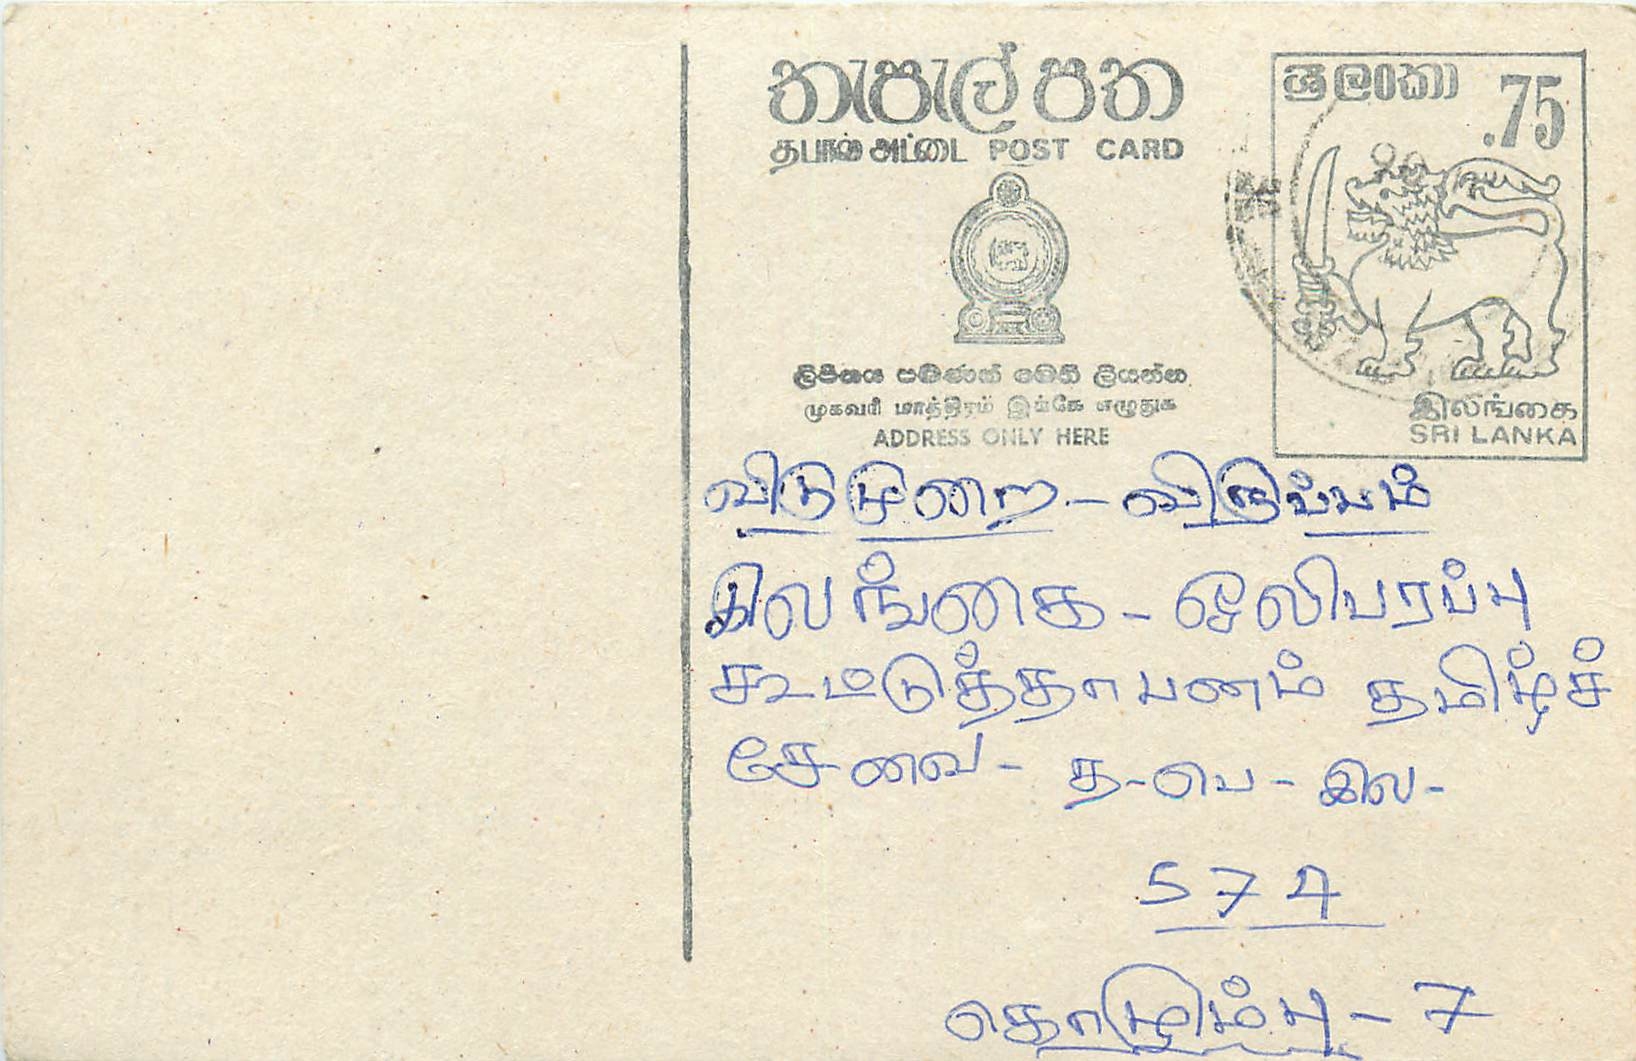 තැපැල් පත
தபால் அட்டை POST CARD
ශ්‍රී ලංකා .75
ලිපිනය පමණක් මෙහි ලියන්න
முகவரி மாத்திரம் இங்கே எழுதுக
ADDRESS ONLY HERE
இலங்கை
SRI LANKA
விடுமுறை - விருப்பம்
இலங்கை - ஒலிபரப்பு
கூட்டுத்தாபனம் தமிழ்ச்
சேவை - த - பெ - இல -
574
கொழும்பு - 7